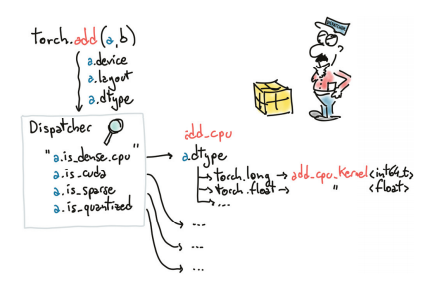 torch.add(a,b)
a.device
a.layout
a.dtype
Dispatcher
"a.is_dense.cpu"
a.is_cuda
a.is_sparse
a.is_quantized
add_cpu
a.dtype
torch.long → add_cpu_kernel<int64_t>
torch.float → " <float>
...
...
...
...
DISPATCHER